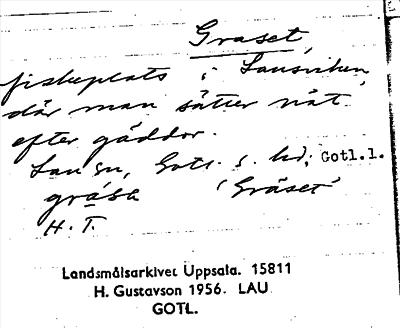 Graset,
fiskeplats i Lausviken,
där man sätter nät
efter gäddor.
Lau sn, Gotl. s. hd, Gotl.l.
'Gräset'
H. T.
Landsmålsarkivet Uppsala. 15811
H. Gustavson 1956. LAU
GOTL.